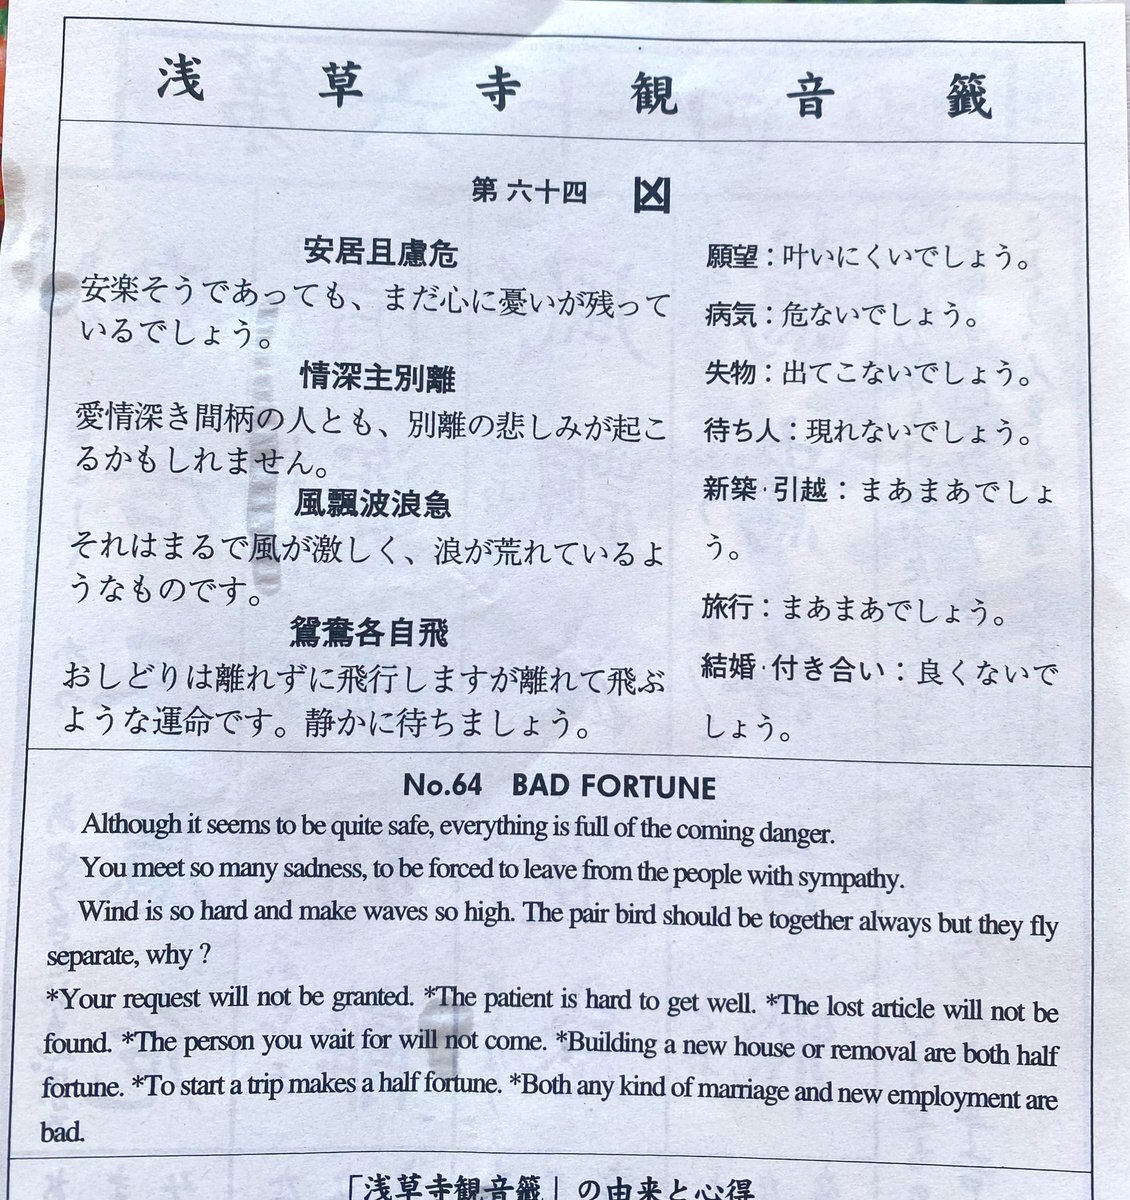 浅草寺観音籤
第六十四 凶
安居且慮危
安楽そうであっても、まだ心に憂いが残って
いるでしょう。
情深主別離
愛情深き間柄の人とも、別離の悲しみが起こ
るかもしれません。
風飄波浪急
それはまるで風が激しく、浪が荒れているよ
うなものです。
鴛鴦各自飛
おしどりは離れずに飛行しますが離れて飛ぶ
ような運命です。静かに待ちましょう。
願望：叶いにくいでしょう。
病気：危ないでしょう。
失物：出てこないでしょう。
待ち人：現れないでしょう。
新築·引越：まあまあでしょ
う。
旅行：まあまあでしょう。
結婚·付き合い：良くないで
しょう。
No.64 BAD FORTUNE
Although it seems to be quite safe, everything is full of the coming danger.
You meet so many sadness, to be forced to leave from the people with sympathy.
Wind is so hard and make waves so high. The pair bird should be together always but they fly
separate, why ?
*Your request will not be granted. *The patient is hard to get well. *The lost article will not be
found. *The person you wait for will not come. *Building a new house or removal are both half
fortune. *To start a trip makes a half fortune. *Both any kind of marriage and new employment are
bad.
「浅草寺観音籤」の由来と心得